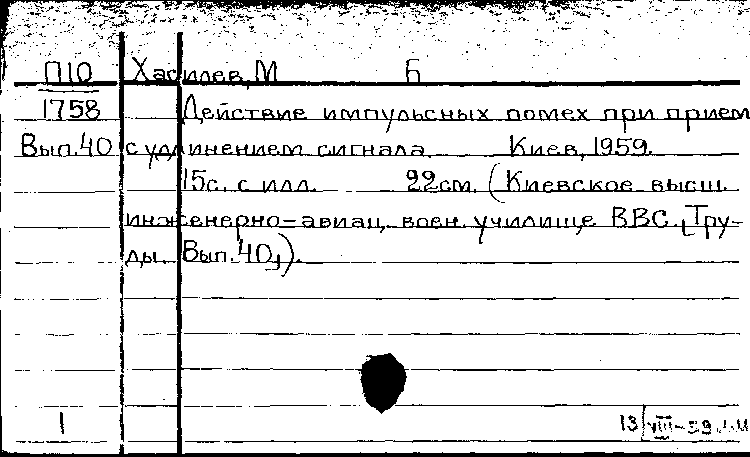 П10 Хасилев, М Б
1758 Действие импульсных помех при прием
Вып.40 с удлинением сигнала. Киев, 1959.
15с. с илл. 22см. (Киевское высш.
инженерно-авиац. воен. училище ВВС. [Тру-
ды. Вып.40]).
1 13/VIII-59